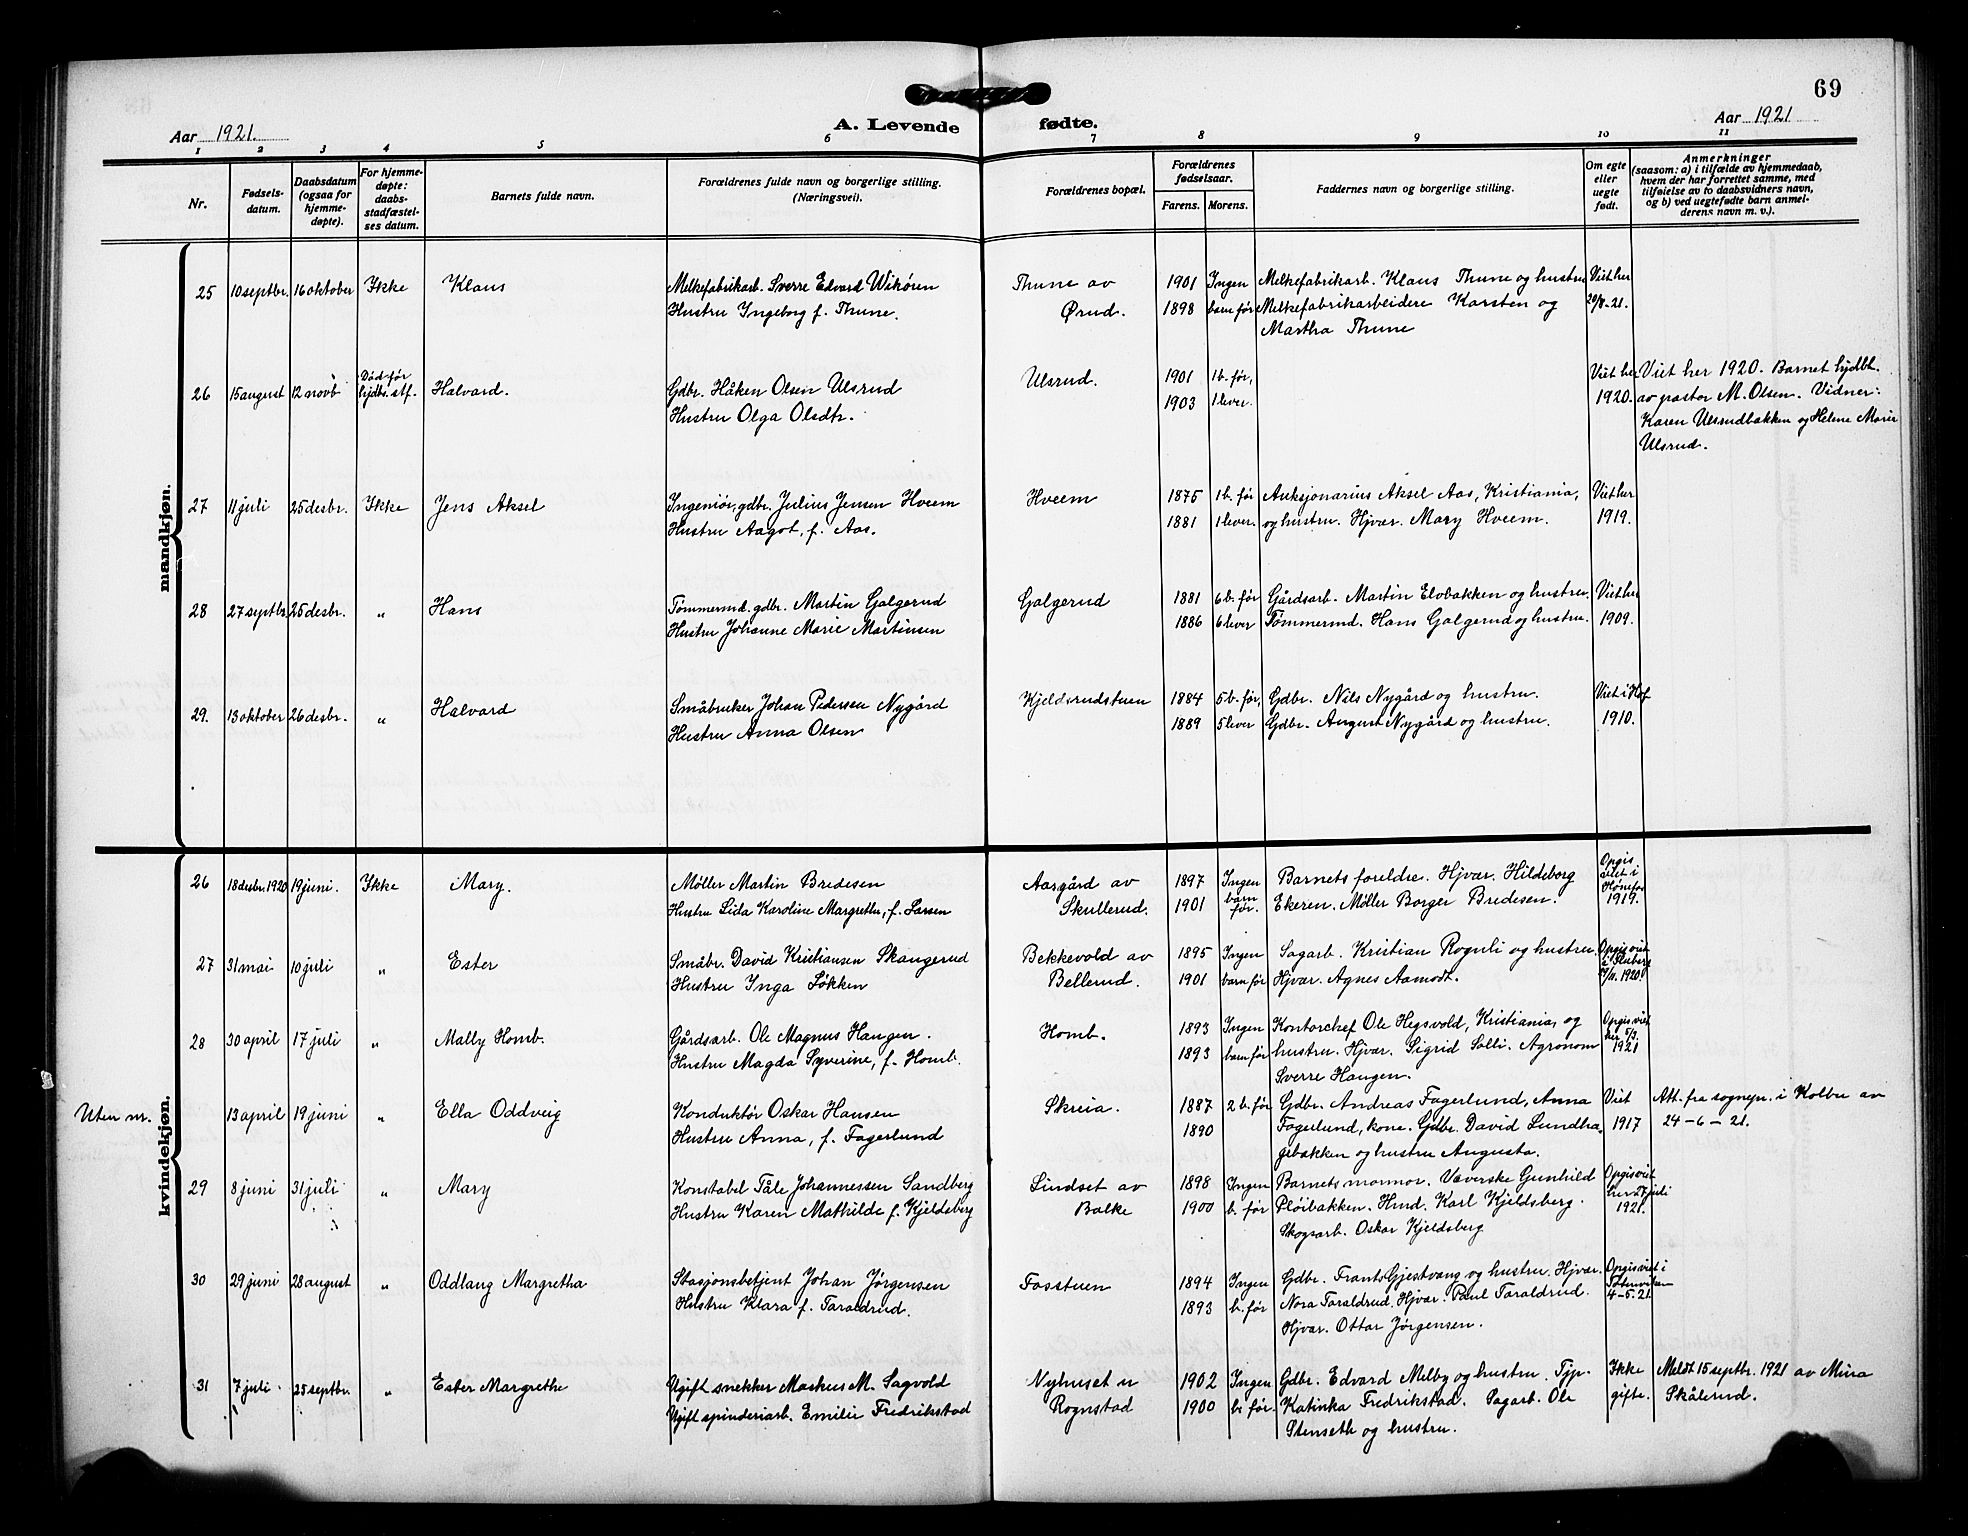 69
Aar 1921.
A. Levende
fødte.
Aar 1921
1 2 3 4 5 6 7 8 9 10 11
Nr.
Fødsels-
datum.
Daabsdatum
(ogsaa for
hjemme-
døpte).
For hjemme-
døpte:
daabs-
stadfæstel-
ses datum.
Barnets fulde navn.
Forældrenes fulde navn og borgerlige stilling.
(Næringsvei).
Forældrenes bopæl.
Forældrenes
fødselsaar.
Farens. Morens.
Faddernes navn og borgerlige stilling.
Om egte
eller
uegte
født.
Anmerkninger
(saasom: a) i tilfælde av hjemmedaab,
hvem der har forrettet samme, med
tilføielse av to daabsvidners navn,
og b) ved uegtefødte barn anmel-
derens navn m. v.).
mandkjøn.
25 10 septbr. 16 oktober Ikke Klaus Melkefabrikarb. Sverre Edvard Wikøren Thune av 1901 Ingen Melkefabrikarb. Klaus Thune og hustru Viet her
Hustru Ingeborg f. Thune. Ørud. 1898 barn før Melkefabrikarbeidere Karsten og 20/8-21.
Martha Thune
26 15 august 12 novb Død før hjdbs. stf. Halvard. Gdbr. Håken Olsen Ulsrud Ulsrud. 1901 1 b. før, Viet her Viet her 1920. Barnet hjdbt.
Hustru Olga Olsdtr. 1903 1 lever. 1920. av pastor M. Olsen. Vidner:
Karen Ulsrudbakken og Helene Marie
Ulsrud.
27 11 juli 25 desbr. Ikke Jens Aksel Ingeniør, gdbr. Julius Jensen Hveem Hveem 1875 1 b. før Auksjonarius Aksel Aas, Kristiania, Viet her
Hustru Aagot, f. Aas. 1881 1 lever. og hustru. Hjvær. Mary Hveem. 1919.
28 27 septbr. 25 desbr. " Hans Tømmermd. gdbr. Martin Galgerud Galgerud 1881 6 b. før Gårdsarb. Martin Elvbakken og hustru. Viet her
Hustru Johanne Marie Martinsen 1886 6 lever Tømmermd. Hans Galgerud og hustru. 1909.
29. 13 oktober 26 desbr. " Halvard Småbruker Johan Pedersen Nygård Kjeldsrudstuen 1884 5 b. før, Gdbr. Nils Nygård og hustru. Viet i Hof
Hustru Anna Olsen 1889 5 lever Gdbr. August Nygård og hustru. 1910.
kvindekjøn.
26 18 desbr. 1920 19 juni. Ikke Mary. Møller Martin Bredesen Aasgård av 1897 Ingen Barnets foreldre. Hjvær. Hildeborg Opgis viet i
Hustru Lida Karoline Margrethe, f. Larsen Skullerud. 1901 barn før. Ekeren. Møller Borger Bredesen. Hønefos 1919.
27 31 mai 10 juli " Ester Småbr. David Kristiansen Skangerud Bekkevold av 1895 Ingen Sagarb. Kristian Rognli og hustru Opgis viet
Hustru Inga Løkken Bellerud. 1901 barn før Hjvær. Agnes Aamodt. 1920
28 30 april 17 juli " Mally Homb. Gårdsarb. Ole Magnus Haugen. Homb. 1893 Ingen Kontorchef Ole Hegsvold, Kristiania, og Opgis viet
Hustru Magda Syverine, f. Homb. 1893 barn før hustru. Hjvær. Sigrid Solli. Agronom her 5/3 1921
Sverre Haugen.
Uten nr. 13 april 19 juni " Ella Oddveig Konduktør Oskar Hansen Skreia. 1887 2 b. før Gdbr. Andreas Fagerlund, Anna Viet Att. fra sognepr. i Kolbu av
Hustru Anna, f. Fagerlund 1890 Fagerlund, kone. Gdbr. David Lundha- 1917 24-6-21.
gebakken og hustru Augusta.
29 8 juni 31 juli " Mary Konstabel Tåle Johannessen Sandberg Lindset av 1898 Ingen Barnets mormor. Væverske Gunhild Opgis viet
Hustru Karen Mathilde f. Kjeldsberg Balke 1900 b. før Pløibakken. Hmd. Karl Kjeldsberg. her 27 juli
Skogsarb. Oskar Kjeldsberg 1921.
30 29 juni 28 august " Oddlaug Margretha Stasjonsbetjent Johan Jørgensen Fosstuen 1894 Ingen Gdbr. Frants Gjestvang og hustru. Hjvær. Opgis viet i
Hustru Klara f. Taraldrud. 1893 b. før Nora Taraldrud. Hjvær. Paul Taraldrud. Totenviken
Hjvær. Ottar Jørgensen. 4-5.21
31 7 juli 25 septbr. " Ester Margrethe Ugift snekker Markus M. Sagvold Nyhuset u 1902 Ingen Gdbr. Edvard Melby og hustru. Tjp. Ikke Meldt 15 septbr. 1921 av Mina
Ugift spinderiarb. Emilie Fredrikstad Rognstad 1900 b. før. Katinka Fredrikstad. Sagarb. Ole gifte. Skålerud.
Stenseth og hustru.